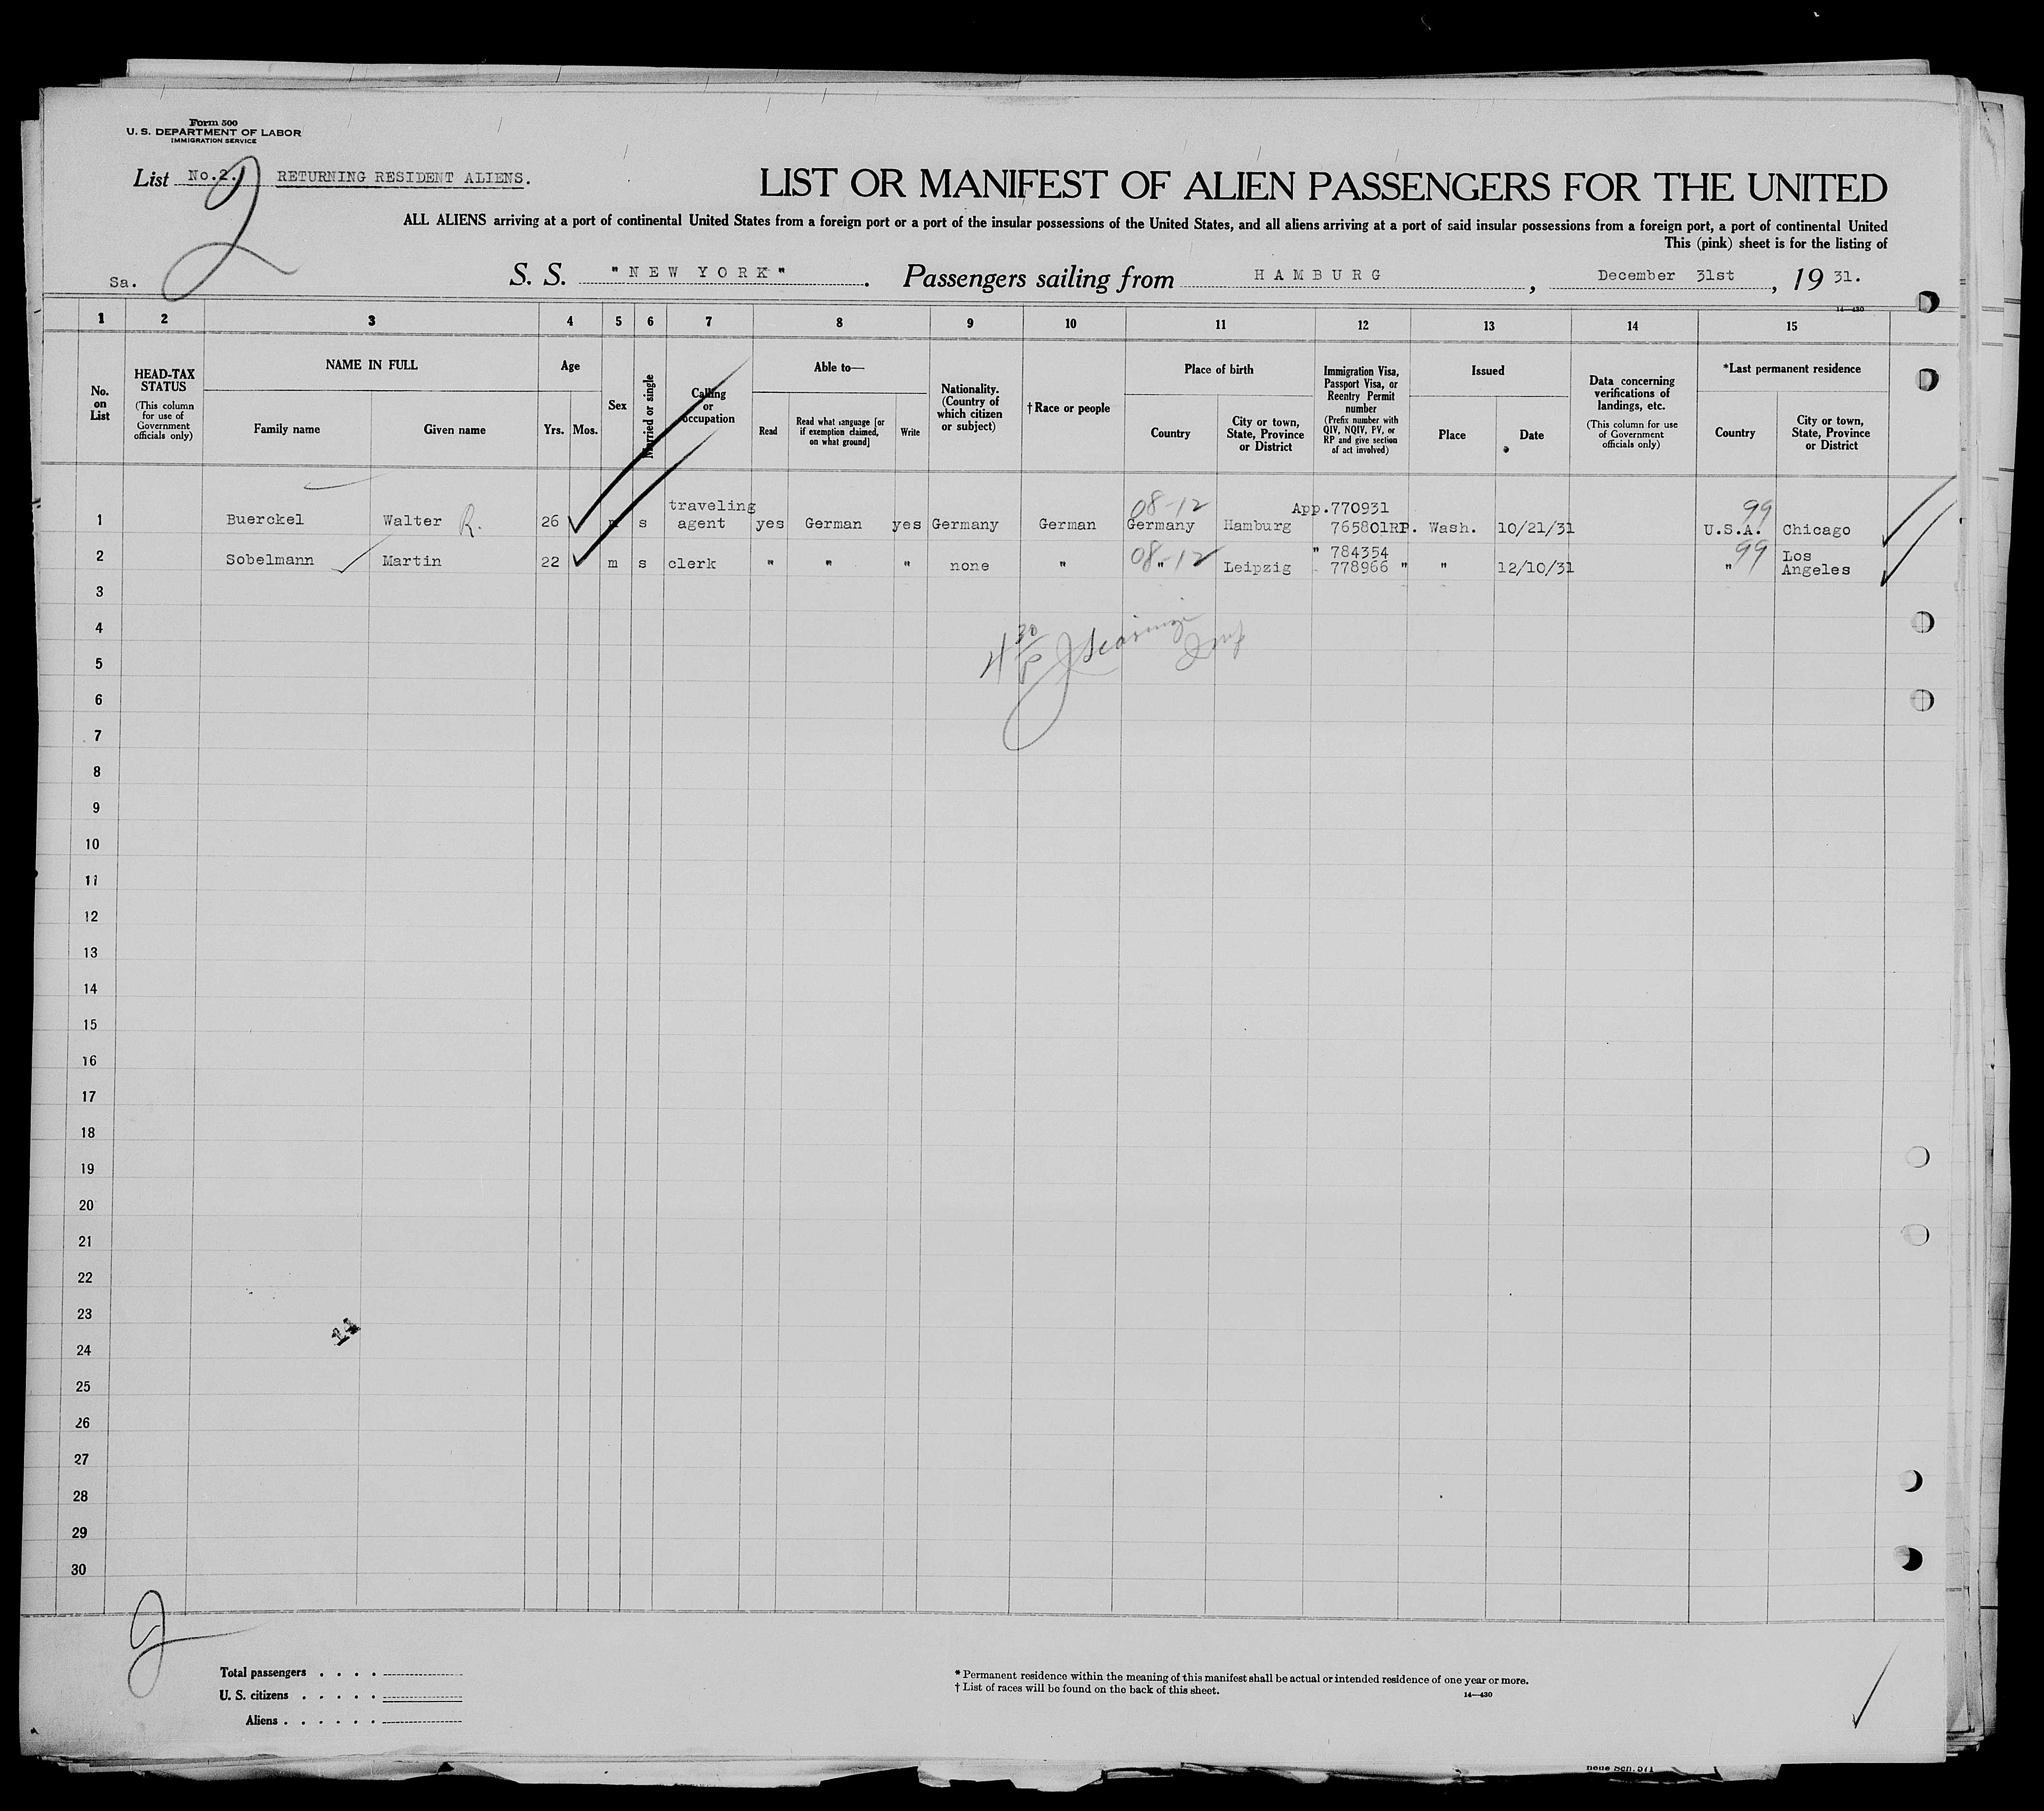 Form 500
U. S. DEPARTMENT OF LABOR
IMMIGRATION SERVICE
List No.2. RETURNING RESIDENT ALIENS.
2
LIST OR MANIFEST OF ALIEN PASSENGERS FOR THE UNITED
ALL ALIENS arriving at a port of continental United States from a foreign port or a port of the insular possessions of the United States, and all aliens arriving at a port of said insular possessions from a foreign port, a port of continental United
This (pink) sheet is for the listing of
Sa.
S. S. "NEW YORK". Passengers sailing from HAMBURG, December 31st, 1931.
14—430
1 2 3 4 5 6 7 8 9 10 11 12 13 14 15
No. on List
HEAD-TAX STATUS
(This column for use of Government officials only)
NAME IN FULL
Family name
Given name
Age
Yrs.
Mos.
Sex
Married or single
Calling or occupation
Able to—
Read
Read what language [or if exemption claimed, on what ground]
Write
Nationality. (Country of which citizen or subject)
†Race or people
Place of birth
Country
City or town, State, Province or District
Immigration Visa, Passport Visa, or Reentry Permit number
(Prefix number with QIV, NQIV, PV, or RP and give section of act involved)
Issued
Place
Date
Data concerning verifications of landings, etc.
(This column for use of Government officials only)
*Last permanent residence
Country
City or town, State, Province or District
08-12 App.770931 99
1 Buerckel Walter R. 26 m s traveling agent yes German yes Germany German Germany Hamburg 765801RP. Wash. 10/21/31 U.S.A. Chicago
08-12 " 784354 99
2 Sobelmann Martin 22 m s clerk " " " none " " Leipzig 778966 " " 12/10/31 " Los Angeles
3
4
4 30
5
6
7
8
9
10
11
12
13
14
15
16
17
18
19
20
21
22
23
11
24
25
26
27
28
29
30
2
Total passengers . . . .
U. S. citizens . . . . .
Aliens . . . . . .
* Permanent residence within the meaning of this manifest shall be actual or intended residence of one year or more.
† List of races will be found on the back of this sheet.
14—430